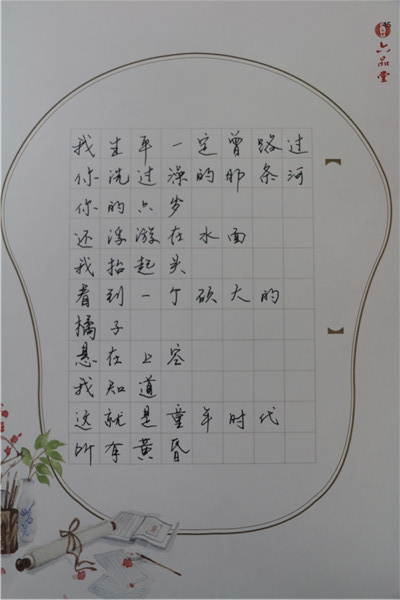 六品堂
我生平一定曾路过
你洗过澡的那条河
你的六岁
还浮游在水面
我抬起头
看到一个硕大的
橘子
悬在上空
我知道
这就是童年时代
所有黄昏